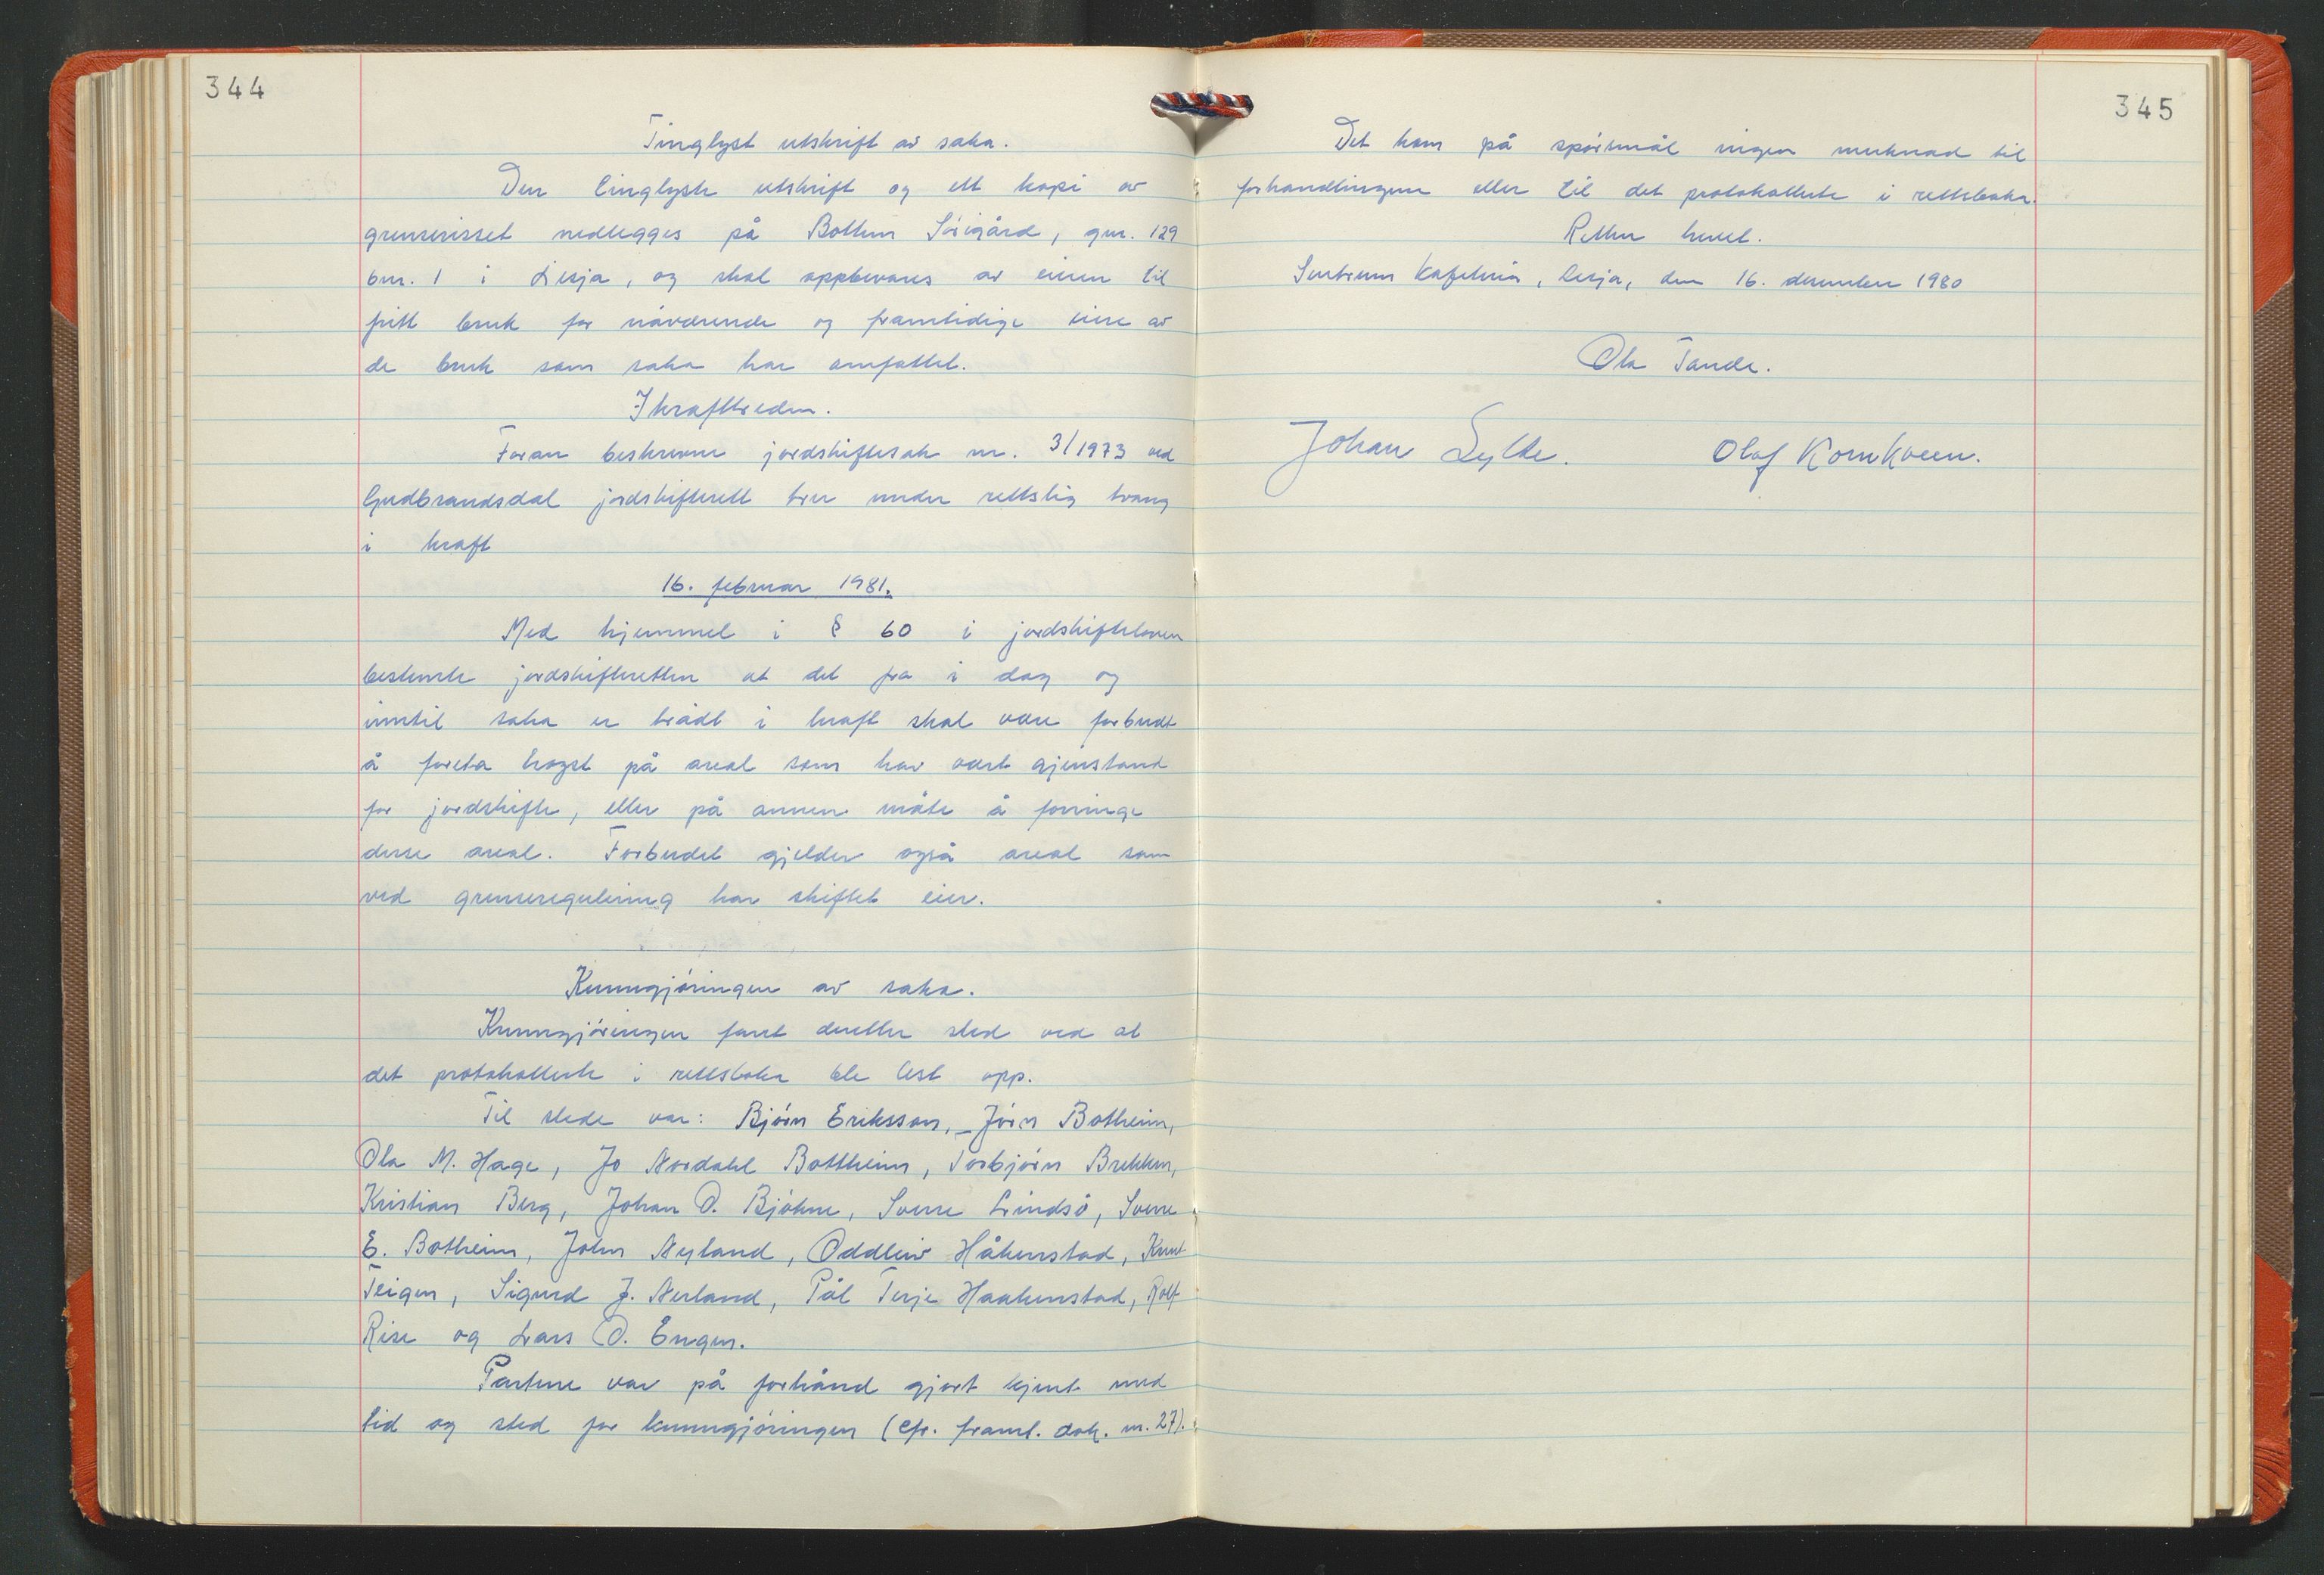 344
Tinglyst utskrift av saka.
Den tinglyste utskrift og ett kopi av
grenserisset nedlegges på Bottem Sørigård, gnr. 129
bnr. 1 i Lesja, og skal oppbevares av eieren til
fritt bruk for nåværende og framtidige eiere av
de bruk som saka har omfattet.
Ikrafttreden.
Foran beskrevne jordskiftesak nr. 3/1973 ved
Gudbrandsdal jordskifterett trer under rettslig tvang
i kraft
16. februar 1981.
Med hjemmel i § 60 i jordskifteloven
bestemte jordskifteretten at det fra i dag og
inntil saka er trådt i kraft skal være forbudt
å foreta hogst på areal som har vært gjenstand
for jordskifte, eller på annen måte å forringe
disse areal. Forbudet gjelder også areal som
ved grenseregulering har skiftet eier.
Kunngjøringen av saka.
Kunngjøringen fant deretter sted ved at
det protokollerte i rettsboka ble lest opp.
Til stede var: Bjørn Eriksson, Jørn Botheim,
Ola M. Hage, Jo Nordahl Bottheim, Torbjørn Brekken,
Kristian Berg, Johan O. Bjøkne, Sverre Lindsø, Sverre
E. Botheim, John Nyland, Oddleiv Håkenstad, Knut
Teigen, Sigurd J. Nerland, Pål Terje Haakenstad, Rolf
Rise og Lars O. Enger.
Partene var på forhånd gjort kjent med
tid og sted for kunngjøringen (cfr. framl. dok. nr. 27).
345
Det kom på spørsmål ingen merknad til
forhandlingene eller til det protokollerte i rettsboka.
Retten hevet.
Sentrum Kafeteria, Lesja, den 16. desember 1980
Ola Tande.
Johan Sylte. Olaf Kornkveen.